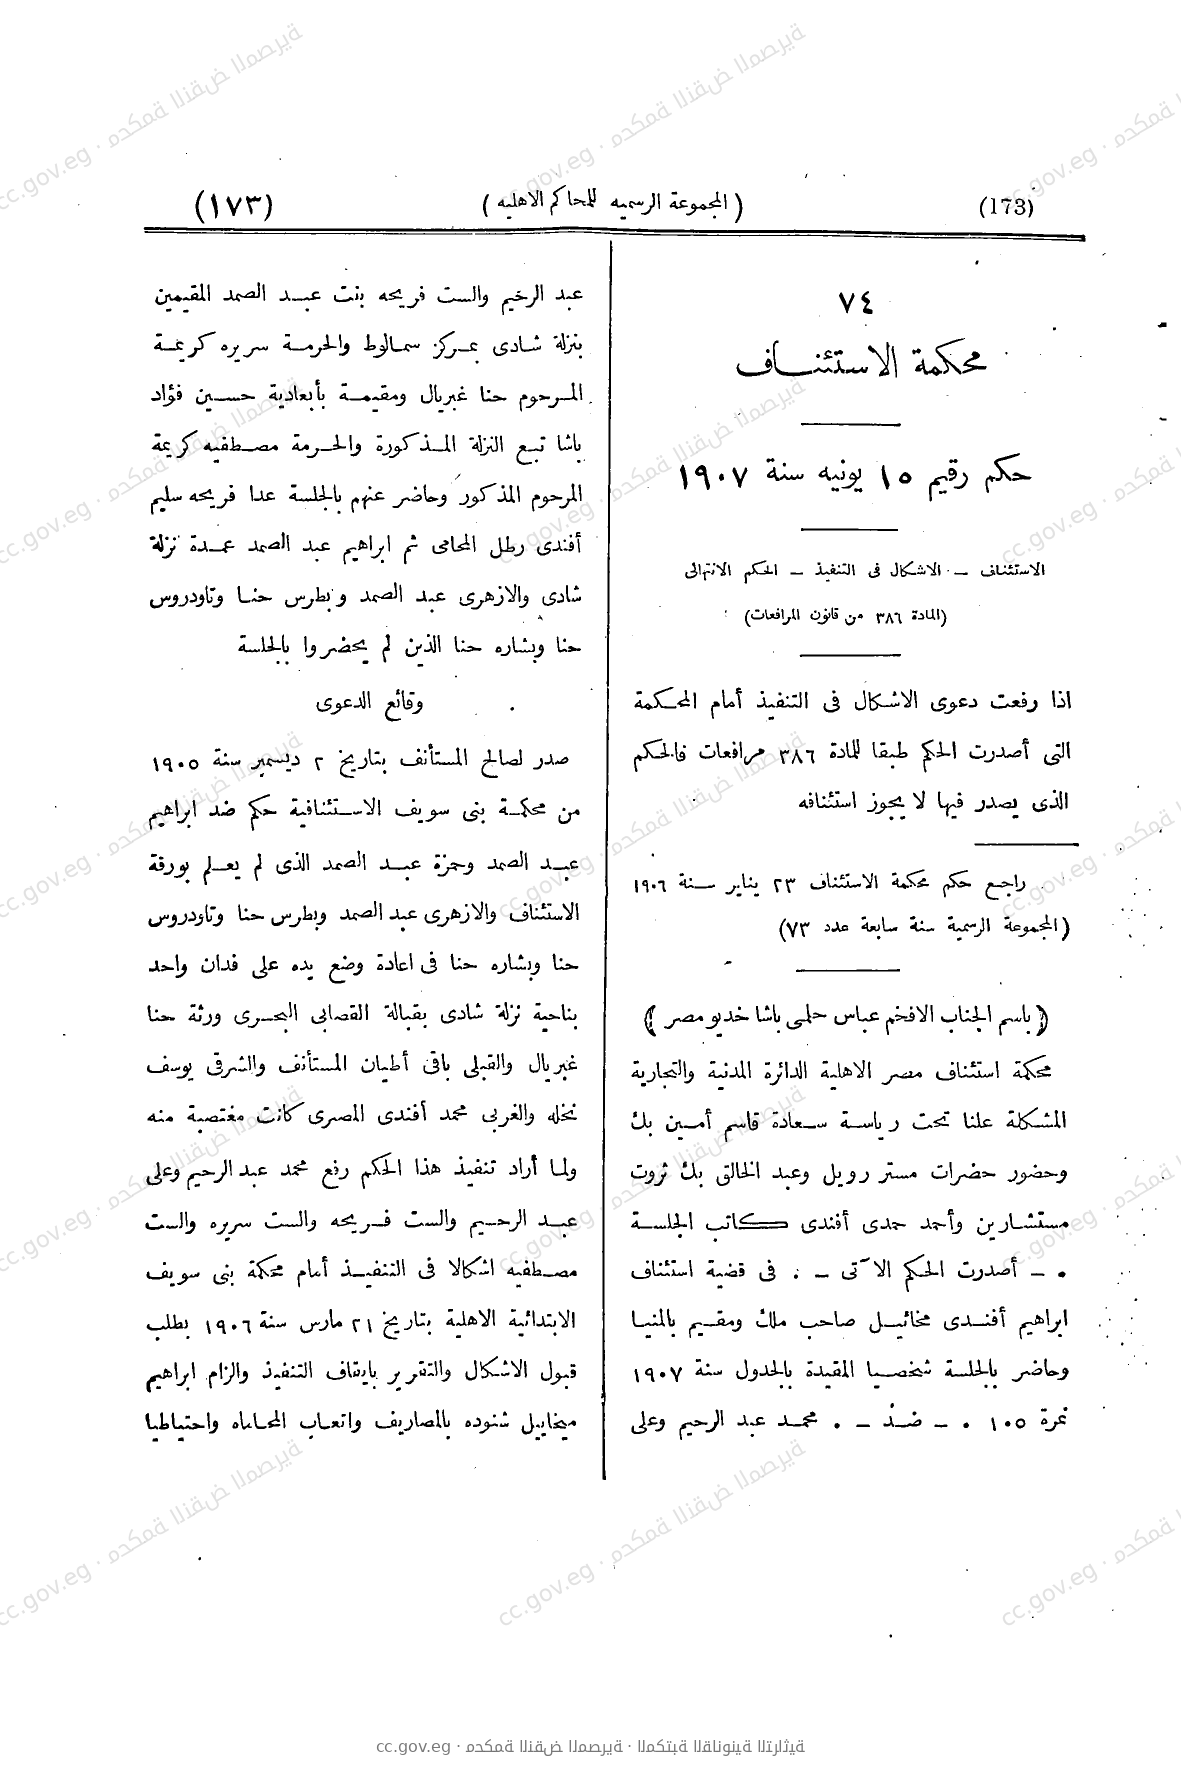 (173)
( المجموعة الرسميه للمحاكم الاهليه )
(١٧٣)
٧٤
محكمة الاستئنـــاف
حكم رقيم ١٥ يونيه سنة ١٩٠٧
الاستئناف — الاشكال فى التنفيذ — الحكم الانتهائى
(المادة ٣٨٦ من قانون المرافعات)
اذا رفعت دعوى الاشكال فى التنفيذ أمام المحكمة
التى أصدرت الحكم طبقا للمادة ٣٨٦ مرافعات فالحكم
الذى يصدر فيها لا يجوز استئنافه
راجع حكم محكمة الاستئناف ٢٣ يناير سنة ١٩٠٦
(المجموعة الرسمية سنة سابعة عدد ٧٣)
( باسم الجناب الافخم عباس حلمى باشا خديو مصر )
محكمة استئناف مصر الاهلية الدائرة المدنية والتجارية
المشكلة علنا تحت رياسة سعادة قاسم أمين بك
وحضور حضرات مستر رويل وعبد الخالق بك ثروت
مستشارين وأحمد حمدى أفندى كاتب الجلسة
. — أصدرت الحكم الآتى — . فى قضية استئناف
ابراهيم أفندى مخائيل صاحب ملك ومقيم بالمنيا
وحاضر بالجلسة شخصيا المقيدة بالجدول سنة ١٩٠٧
نمرة ١٠٥ . — ضد — . محمد عبد الرحيم وعلى
عبد الرخيم والست فريحه بنت عبد الصمد المقيمين
بنزلة شادى بمركز سمالوط والحرمة سريره كريمة
المرحوم حنا غبريال ومقيمة بأبعادية حسين فؤاد
باشا تبع النزلة المذكورة والحرمة مصطفيه كريمة
المرحوم المذكور وحاضر عنهم بالجلسة عدا فريحه سليم
أفندى رطل المحامى ثم ابراهيم عبد الصمد عمدة نزلة
شادى والازهرى عبد الصمد وبطرس حنا وتاودروس
حنا وبشاره حنا الذين لم يحضروا بالجلسة
وقائع الدعوى
صدر لصالح المستأنف بتاريخ ٢ ديسمبر سنة ١٩٠٥
من محكمة بنى سويف الاستئنافية حكم ضد ابراهيم
عبد الصمد وحمزة عبد الصمد الذى لم يعلم بورقة
الاستئناف والازهرى عبد الصمد وبطرس حنا وتاودروس
حنا وبشاره حنا فى اعادة وضع يده على فدان واحد
بناحية نزلة شادى بقبالة القصابى البحرى ورثة حنا
غبريال والقبلى باقى أطيان المستأنف والشرقى يوسف
نخله والغربى محمد أفندى المصرى كانت مغتصبة منه
ولما أراد تنفيذ هذا الحكم رفع محمد عبد الرحيم وعلى
عبد الرحيم والست فريحه والست سريره والست
مصطفيه اشكالا فى التنفيذ أمام محكمة بنى سويف
الابتدائية الاهلية بتاريخ ٢١ مارس سنة ١٩٠٦ بطلب
قبول الاشكال والتقرير بايقاف التنفيذ والزام ابراهيم
ميخاييل شنوده بالمصاريف واتعاب المحاماه واحتياطيا
cc.gov.eg · محكمة النقض المصرية · المكتبة القانونية التراثية